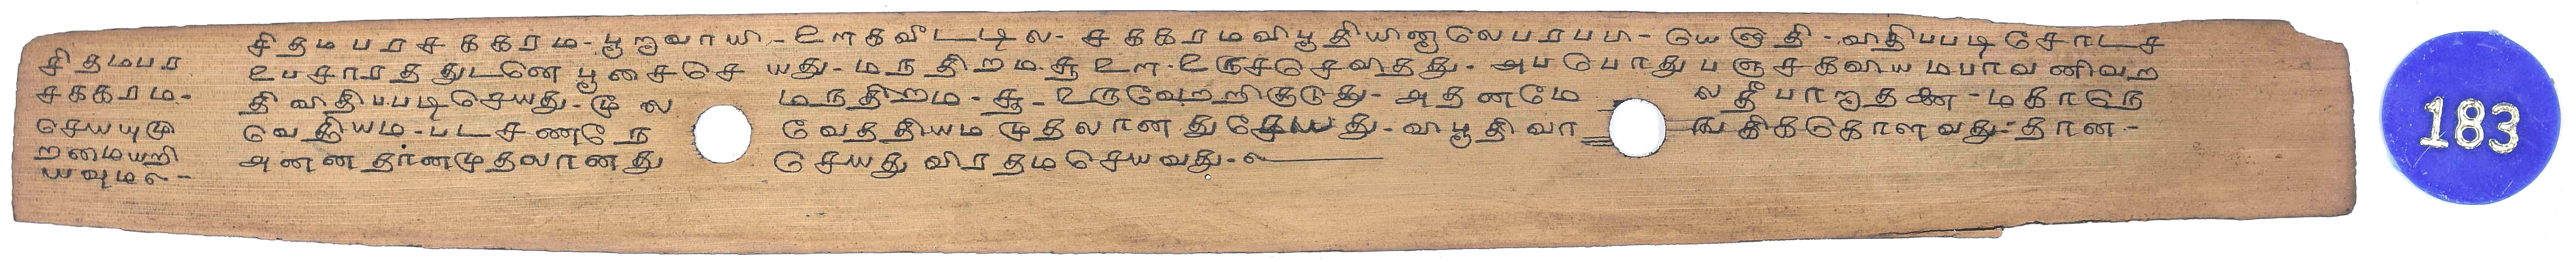 சிதமபர
சககரம-
செயயுமு
றமையறி
யவும௳-
சிதமபரசககரம- பூறுவாயி- உளகவீட்டடில- சககரமவிபூதியினாலெபரபபி- யெஞதி- விதிபபடிசோடச
உபசாரததுடனெ பூசைசெ யது- மநதிறம- சூ உள- உருசசெவிதது- அபபொது பஞசகவியமபாவனிவற
தி விதிபபடிசெயது- மூல மநதிறம- சூ- உருவேறறிகுடுது- அதனமே லதீபாறாதனை- மகாநெ
வெதியம- படசணநெ வேததியம முதலானதுசெயது- விபூதிவா ஙகிககொளவது- தான-
அனனதானமுதலானது செயது விரதமசெயவது- ௳
183